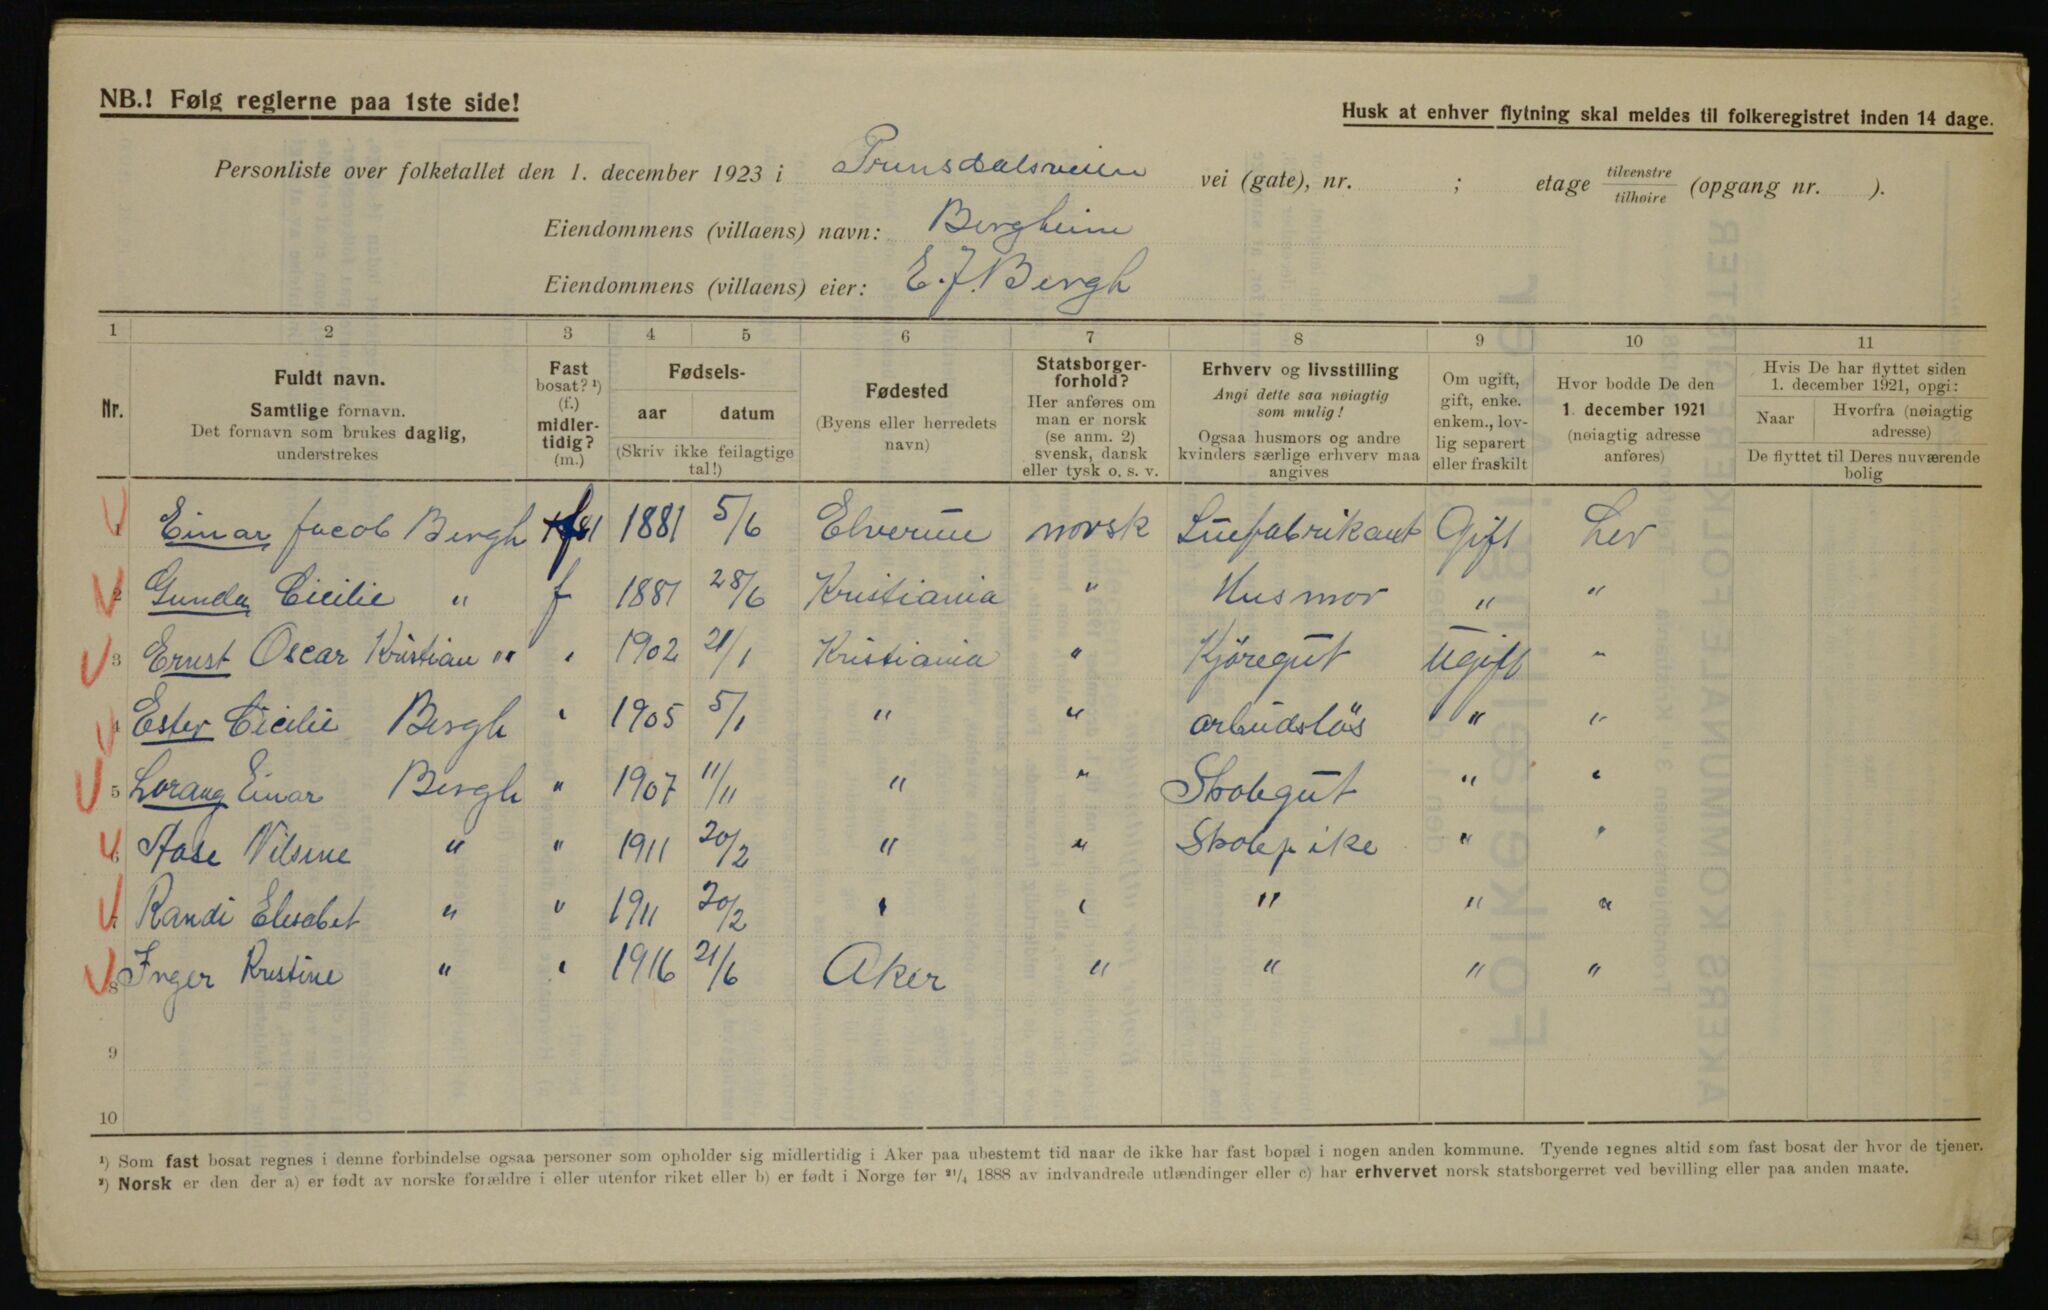 NB.! Følg reglerne paa 1ste side!
Husk at enhver flytning skal meldes til folkeregistret inden 14 dage.
Personliste over folketallet den 1. december 1923 i Prinsdalsveien vei (gate), nr. ; etage tilvenstre tilhøire (opgang nr. ).
Eiendommens (villaens) navn: Bergheim
Eiendommens (villaens) eier: E. J. Bergh
1 2 3 4 5 6 7 8 9 10 11
Nr.
Fuldt navn.
Samtlige fornavn.
Det fornavn som brukes daglig,
understrekes
Fast
bosat? ¹)
(f.)
midler-
tidig?
(m.)
Fødsels-
aar datum
(Skriv ikke feilagtige
tal!)
Fødested
(Byens eller herredets
navn)
Statsborger-
forhold?
Her anføres om
man er norsk
(se anm. 2)
svensk, dansk
eller tysk o. s. v.
Erhverv og livsstilling
Angi dette saa nøiagtig
som mulig!
Ogsaa husmors og andre
kvinders særlige erhverv maa
angives
Om ugift,
gift, enke.
enkem., lov-
lig separert
eller fraskilt
Hvor bodde De den
1. december 1921
(nøiagtig adresse
anføres)
Hvis De har flyttet siden
1. december 1921, opgi:
Naar Hvorfra (nøiagtig
adresse)
De flyttet til Deres nuværende
bolig
1 Einar Jacob Bergh f 1881 5/6 Elverum norsk Luefabrikant Gift her
2 Gunda Cicilie " f 1881 28/6 Kristiania " Husmor " "
3 Ernst Oscar Kristian " " 1902 21/1 Kristiania " Kjöregut Ugift "
4 Ester Cicilie Bergh " 1905 5/1 " " arbeidslös " "
5 Lorang Einar Bergh " 1907 11/11 " " Skolegut " "
6 Aase Nilsine " " 1911 20/2 " " Skolepike " "
7 Randi Elisabet " " 1911 20/2 " " " " "
8 Inger Kristine " " 1916 21/6 Aker " " " "
9
10
¹) Som fast bosat regnes i denne forbindelse ogsaa personer som opholder sig midlertidig i Aker paa ubestemt tid naar de ikke har fast bopæl i nogen anden kommune. Tyende regnes altid som fast bosat der hvor de tjener.
²) Norsk er den der a) er født av norske forældre i eller utenfor riket eller b) er født i Norge før ²¹/₄ 1888 av indvandrede utlændinger eller c) har erhvervet norsk statsborgerret ved bevilling eller paa anden maate.